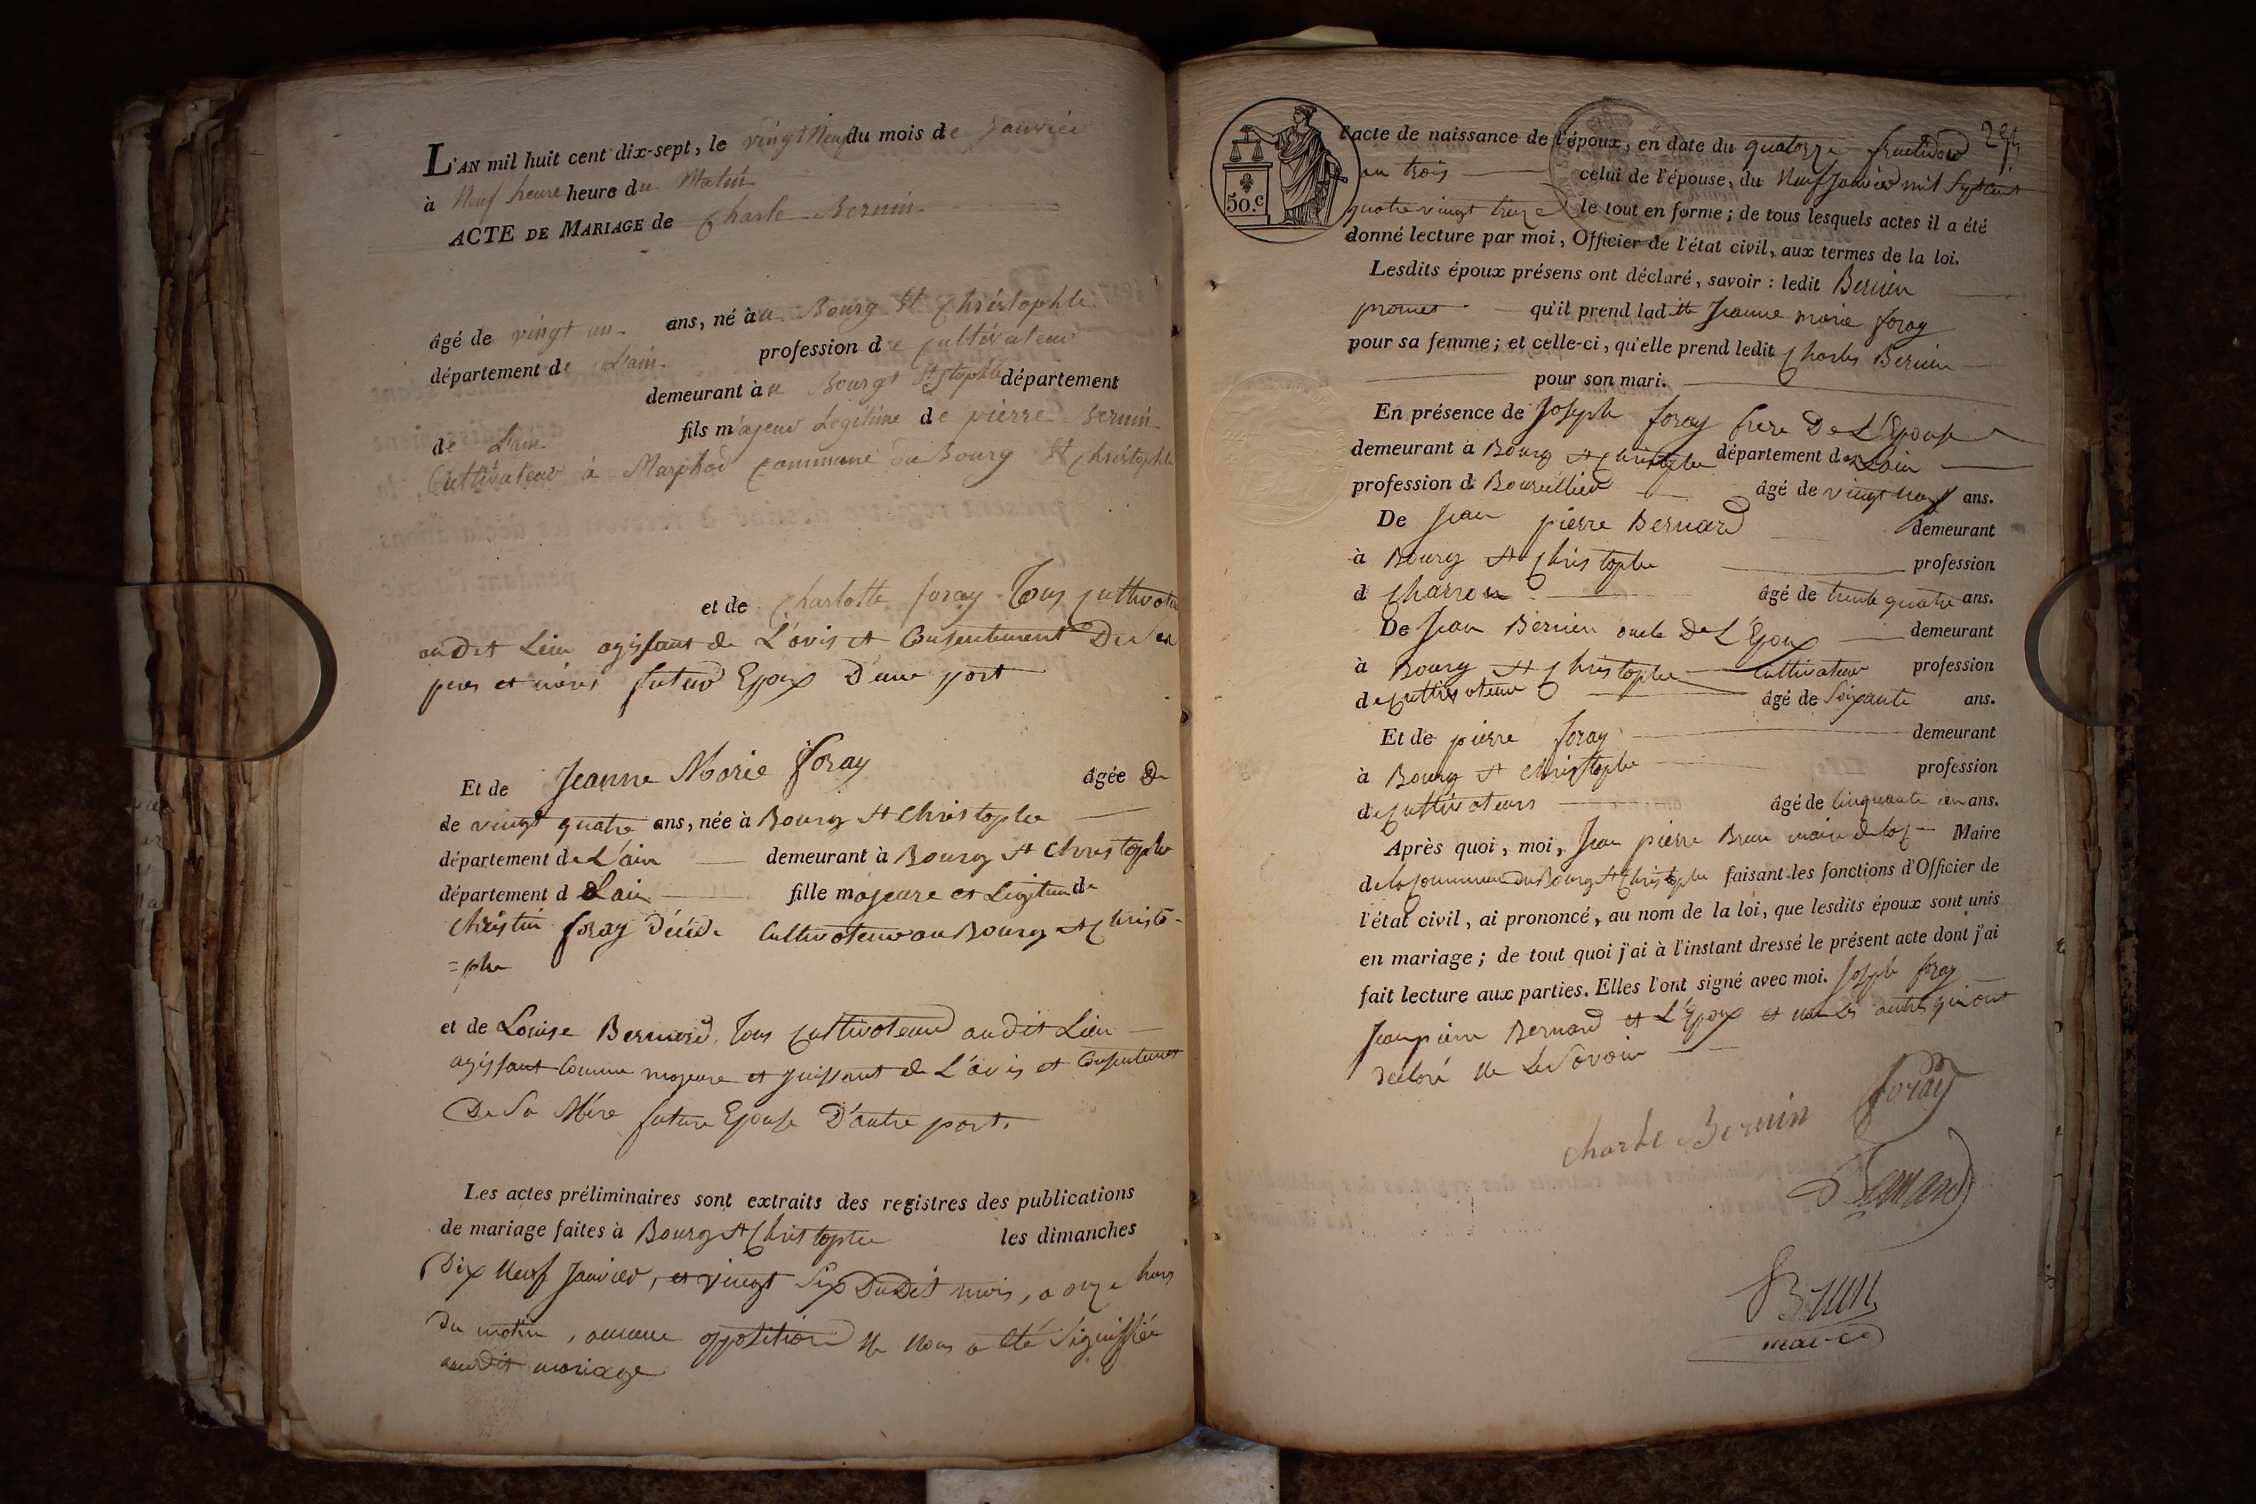 L'AN mil huit cent dix-sept, le vingt Neuf du mois de Janvier
à Neuf heure heure du Matin
ACTE DE MARIAGE de Charle Bernin
âgé de vingt un ans, né à au Bourg St Christophle
département de L'ain profession de Cultivateur
demeurant à au Bourgt St stophle département
de L'ain fils majeur Legitime de pierre Bernin
Cultivateur à commune du Bourg St Christophle
et de Charlotte foray Tous Cultivateur
au dit Lieu agissant de L'avis et Consentement De Ses
peres et meres futur Epoux D'une part
Et de Jeanne Marie foray âgée de
de vingt quatre ans, née à Bourg St Christophe
département de L'ain demeurant à Bourg St Christophe
département d Lain fille majeure et Legitime de
Christin foray Décédé Cultivateur au Bourg St Christo-
=phe
et de Louise Bernard, Tous Cultivateur au dit Lieu
agissant Comme majeure et jouissant de L'avis et Consentement
De Sa Mére future Epouse D'autre part.
Les actes préliminaires sont extraits des registres des publications
de mariage faites à Bourg St Christophe les dimanches
Dix Neuf Janvier, et vingt Six Du Dit mois, a onze heures
Du matin, aucune opposition Ne Nous a été Signiffiée
au dit mariage
50.c
l'acte de naissance de l'époux, en date du quatorze fructidor
an trois celui de l'épouse, du Neuf Janvier mil Sept Cent
quatre vingt treize le tout en forme; de tous lesquels actes il a été
donné lecture par moi, Officier de l'état civil, aux termes de la loi.
Lesdits époux présens ont déclaré, savoir: ledit Bernin
promet qu'il prend ladite Jeanne marie foray
pour sa femme; et celle-ci, qu'elle prend ledit Charles Bernin
pour son mari.
En présence de Joseph foray frere De L'Epouse
demeurant à Bourg St Christophe département de Lain
profession d Bourellier âgé de vingt Neuf ans.
De Jean pierre Bernard demeurant
à Bourg St Christophe profession
d Charron âgé de trente quatre ans.
De Jean Bernin oncle De L'Epoux demeurant
à Bourg St Christophe Cultivateur profession
de Cultivateur âgé de Soixante ans.
Et de pierre foray demeurant
à Bourg St Christophe profession
de Cultivateurs âgé de Cinquante ans.
Après quoi, moi, Jean pierre Brun maire de la C Maire
de la Commune du Bourg St Christophe faisant les fonctions d'Officier de
l'état civil, ai prononcé, au nom de la loi, que lesdits époux sont unis
en mariage; de tout quoi j'ai à l'instant dressé le présent acte dont j'ai
fait lecture aux parties. Elles l'ont signé avec moi. Joseph foray
Jean pierre Bernard et L'Epoux et non Les autres qui ont
declaré Ne Le Savoir
Charle Bernin foray
Bernard
Brun
maire